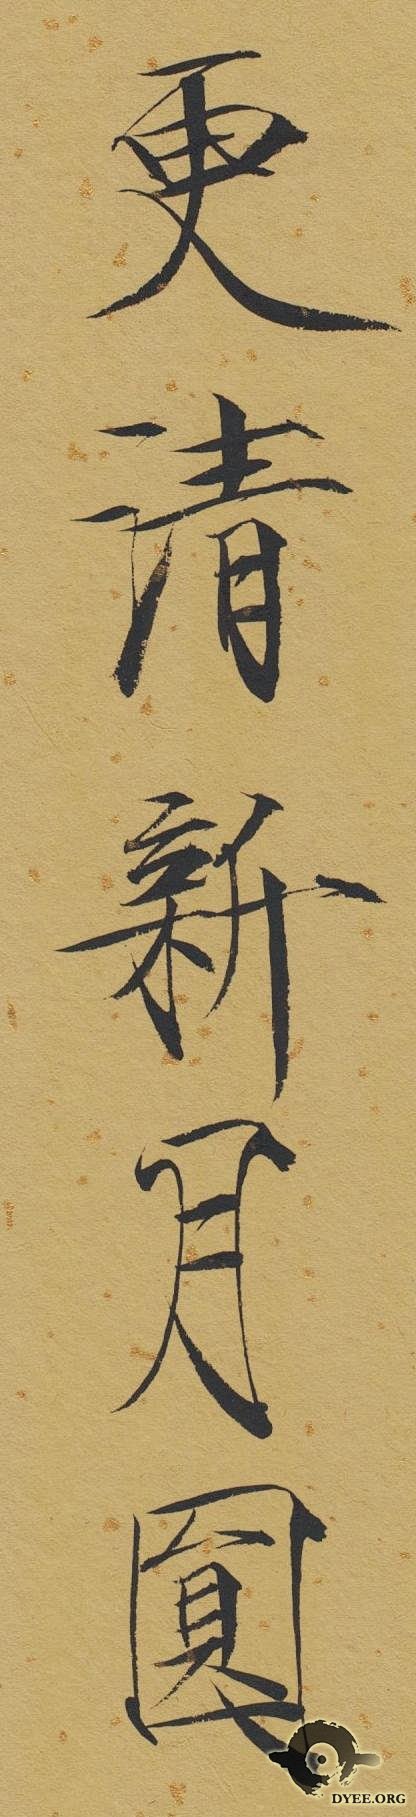 更清新月圓
DYEE.ORG